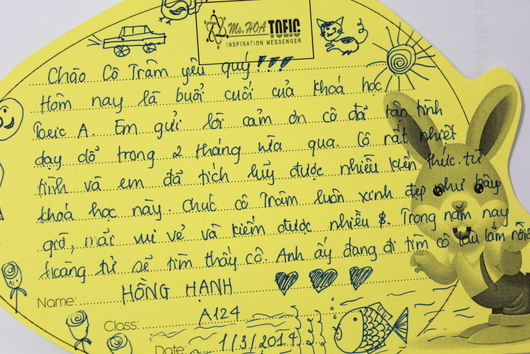 Ms. HOA TOEIC
INSPIRATION MESSENGER
Chào Cô Trâm yêu quý!!!
Hôm nay là buổi cuối của khoá học
Toeic A. Em gửi lời cảm ơn cô đã tận tình
dạy dỗ trong 2 tháng vừa qua. Cô rất nhiệt
tình và em đã tích lũy được nhiều kiến thức từ
khoá học này. Chúc cô Trâm luôn xinh đẹp như bây
giờ, mãi vui vẻ và kiếm được nhiều $. Trong năm nay
hoàng tử sẽ tìm thấy cô. Anh ấy đang đi tìm cô lâu lắm rồi
Name: HỒNG HẠNH
Class: A124
Date: 1/3/2014